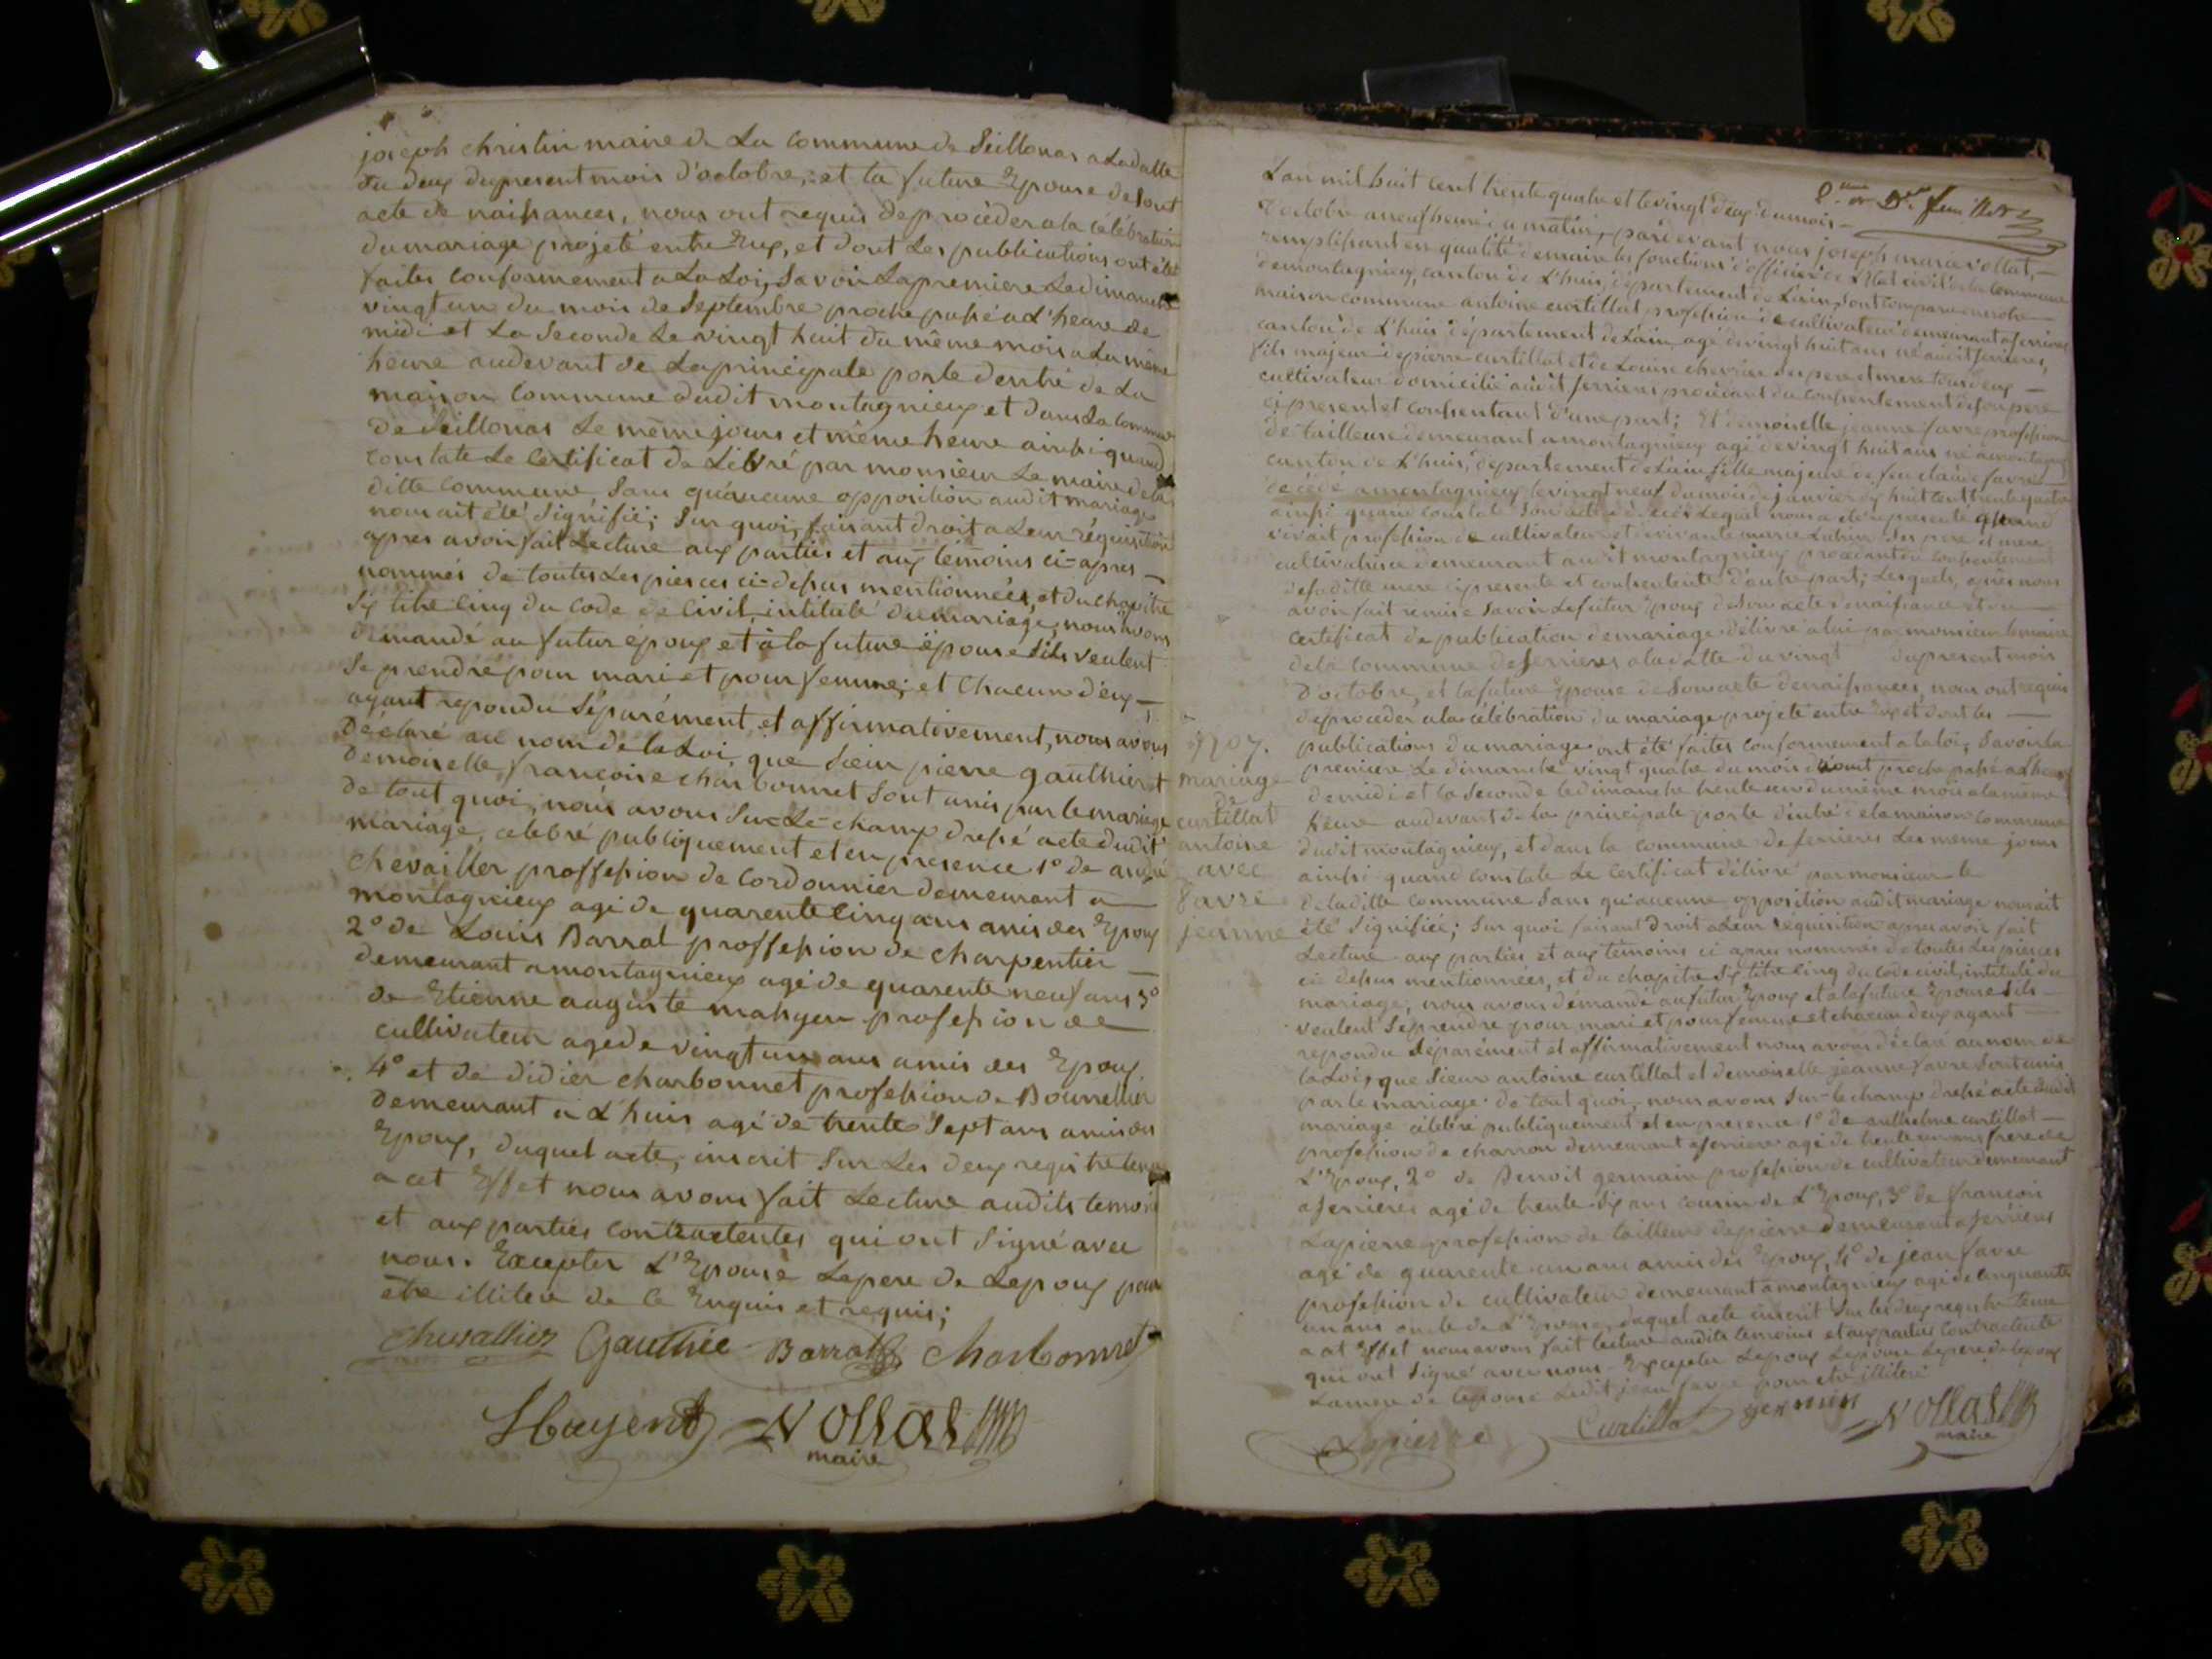 joseph christin maire de La Commune de Seillonas a Ladatte
du deux dupresent mois d'octobre, et la future Epouse deSont
acte de naissances, nous ont requis deprocéder a la célébration
dumariage projeté entre Eux, et dont Les publications ont été
faites conformement a La Loi, Savoir Lapremiere Ledimanche
vingt un du mois de Septembre proche passé a L'heure de
midi et La Seconde Le vingt huit du même mois a La même
heure audevant de Laprincipale porte dentré de La
maison Commune dudit montagnieux et dans La Commune
de Seillonas Le même jours et même heure ainsi quand
Constate Le Certificat de Livré par monsieur Le maire dela
ditte Commune, Sans qu'aucune opposition audit mariage
nous ait été Signifié; Sur quoi, faisant droit a Leur réquisition
apres avoir fait Lecture aux parties et aux temoins ci-apres —
nommés de toutes Les pieces ci-dessus mentionnées, et du chapitre
Six titre Cinq du Code de Civil, intitulé du mariage, nous avons
demandé au futur époux et à la future épouse S'ils veulent
Se prendre pour mari et pour femme; et Chacun d'eux —
ayant repondu Séparément et affirmativement, nous avons
Déclaré au nom de la Loi, que Sieur pierre gauthier et
Demoiselle francoise charbonnet Sont unis par le mariage
de tout quoi, nous avons Sur-Le-champ dressé acte dudit
mariage, célébré publiquement et en presence 1º de andré
Chevailler proffession de Cordonnier demeurant a
montagnieux agé de quarente Cinq ans amis des Epoux
2º de Louis Barrat proffession de charpentier —
demeurant a montagnieux agé de quarente neuf ans 3º
de Etienne auguste profession de
cultivateur agé de vingt un ans amis des Epoux
4º et de didier charbonnet profession de Bourrellier
demeurant a L'huis agé de trente Sept ans amis des
Epoux, duquel acte, inscrit Sur Les deux registre tenus
a cet Effet nous avons fait Lecture audits temoins
et aux parties contractentes qui ont Signé avec
nous. Excepter L'Epouse Lepere de Lepoux pour
etre illiteré de Ce Enquis et requis;
Chevallier Gauthié Barrat Charbonnet
Vollat
maire
L'an mil huit cent trente quatre et levingt deux du mois —
d'octobre a neuf heures du matin, pardevant nous joseph marie vollat, —
remplissant en qualité de maire les fonctions d'officier de L'Etat civil de la Commune
de montagnieux, canton de L'huis, département de L'ain, sont comparu en notre —
maison commune antoine curtillat profession de cultivateur demeurant a serrieres
canton de L'huis département de L'ain, agé de vingt huit ans né audit serrieres,
fils majeur de pierre curtillat et de Louise chevrier Ses pere et mere tous deux —
cultivateur domicilié audit serrieres procédant du consentement de Son pere
ci present et consentant d'une part; Et demoiselle jeanne favre profession
de tailleuse demeurant a montagnieux agé de vingt huit ans né a montagnieux
canton de L'huis, département de L'ain fille majeure de feu claude favre
décédé a montagnieux le vingt neuf du mois de janvier dix huit cent trente quatre
ainsi quand constate Son acte de décés Lequel nous a été representé quand
vivait profession de cultivateur et de vivante marie Ses pere et mere
cultivatrice demeurant audit montagnieux procédant du consentement
de Saditte mere ci presente et consentente d'autre part; Lesquels, apres nous
avoir fait remise Savoir Lefutur Epoux de Son acte de naissance et du —
certificat de publication de mariage délivré a lui par monsieur le maire
de la commune de Serrieres a la datte du vingt dupresent mois
d'octobre, et la future Epouse de Son acte de naissances, nous ont requis
de procéder a la célébration du mariage projeté entre Eux et dont les —
publications du mariage ont été faites conformement a la loi, Savoir la
premiere Le dimanche vingt quatre du mois d'aout proche passé a L'heure
de midi et la Seconde le dimanche trente un du même mois a la même
heure audevant de la principale porte d'entré de la maison Commune
dudit montagnieux, et dans la commune de serrieres Les meme jours
ainsi quand constate Le Certificat délivré par monsieur le
de laditte commune Sans qu'aucune opposition audit mariage nous ait
été Signifiée; Sur quoi faisant Droit a Leur réquisition apres avoir fait
Lecture aux parties et aux témoins ci apres nommés de toutes Les pieces
ci dessus mentionnées, et du chapitre Six titre Cinq du Code civil, intitulé du
mariage, nous avons demandé au futur Epoux et a la future Epouse S'ils —
veulent Se prendre pour mari et pour femme et chacun d'eux ayant —
repondu Séparément et affirmativement nous avons déclaré au nom de
la Loi, que Sieur antoine curtillat et demoiselle jeanne favre Sont unis
par le mariage. de tout quoi, nous avons Sur-le-champ dressé acte dudit
mariage célébré publiquement et en presence 1º de anthelme curtillat —
profession de charron demeurant a serriere agé de trente un ans frere de
L'Epoux, 2º de Benoit germain profession de cultivateur demeurant
a serrieres agé de trente Six ans cousin de L'Epoux, 3º de francois
Lapierre profession de tailleur de pierre demeurant a serrieres
agé de quarente un ans amis des Epoux, 4º de jean favre
profession de cultivateur demeurant a montagnieux agé de Cinquante
un ans oncle de L'Epouse, duquel acte inscrit Sur les deux registre tenu
a cet Effet nous avons fait lecture audits temoins et aux parties contractente
qui ont Signé avec nous. Excepter Lepoux Lepouse Lepere de Lepoux
La mere de Lepouse Ledit jean favre pour etre illiteré
Lapierre Curtillat germin Vollat
maire
nº 07.
mariage
de
curtillat
antoine
avec
favre
jeanne